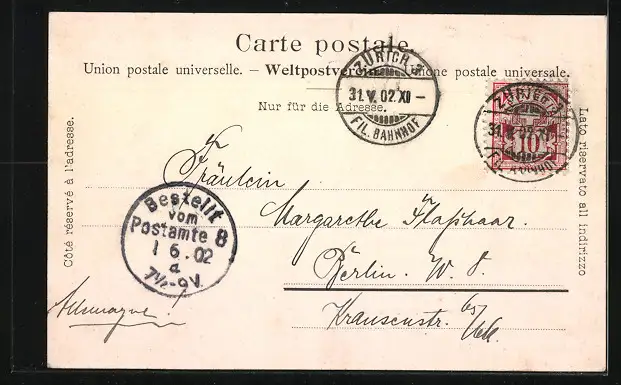 Carte postale.
Union postale universelle. — Weltpostverein — Unione postale universale.
Nur für die Adresse.
Côté réservé à l'adresse.
Lato riservato all indirizzo
ZÜRICH 1
31.V.02.XI–
FIL. BAHNHOF
ZÜRICH 1
31.V.02.XI–
FIL. BAHNHOF
10
Fräulein
Margarethe Flaßhaar.
Berlin. W. 8.
Krausenstr.
Bestellt
vom
Postamte 8
1 6.02
a
7½-9V.
Allemagne!